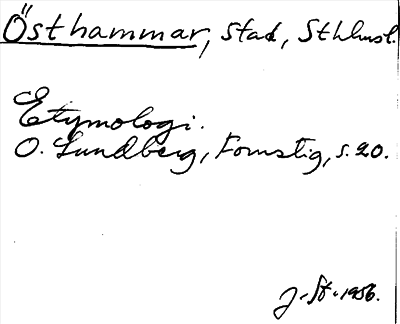 Östhammar, stad, Sthlmsl.
Etymologi.
O. Lundberg, Fornstig, s. 20.
J. St. 1956.